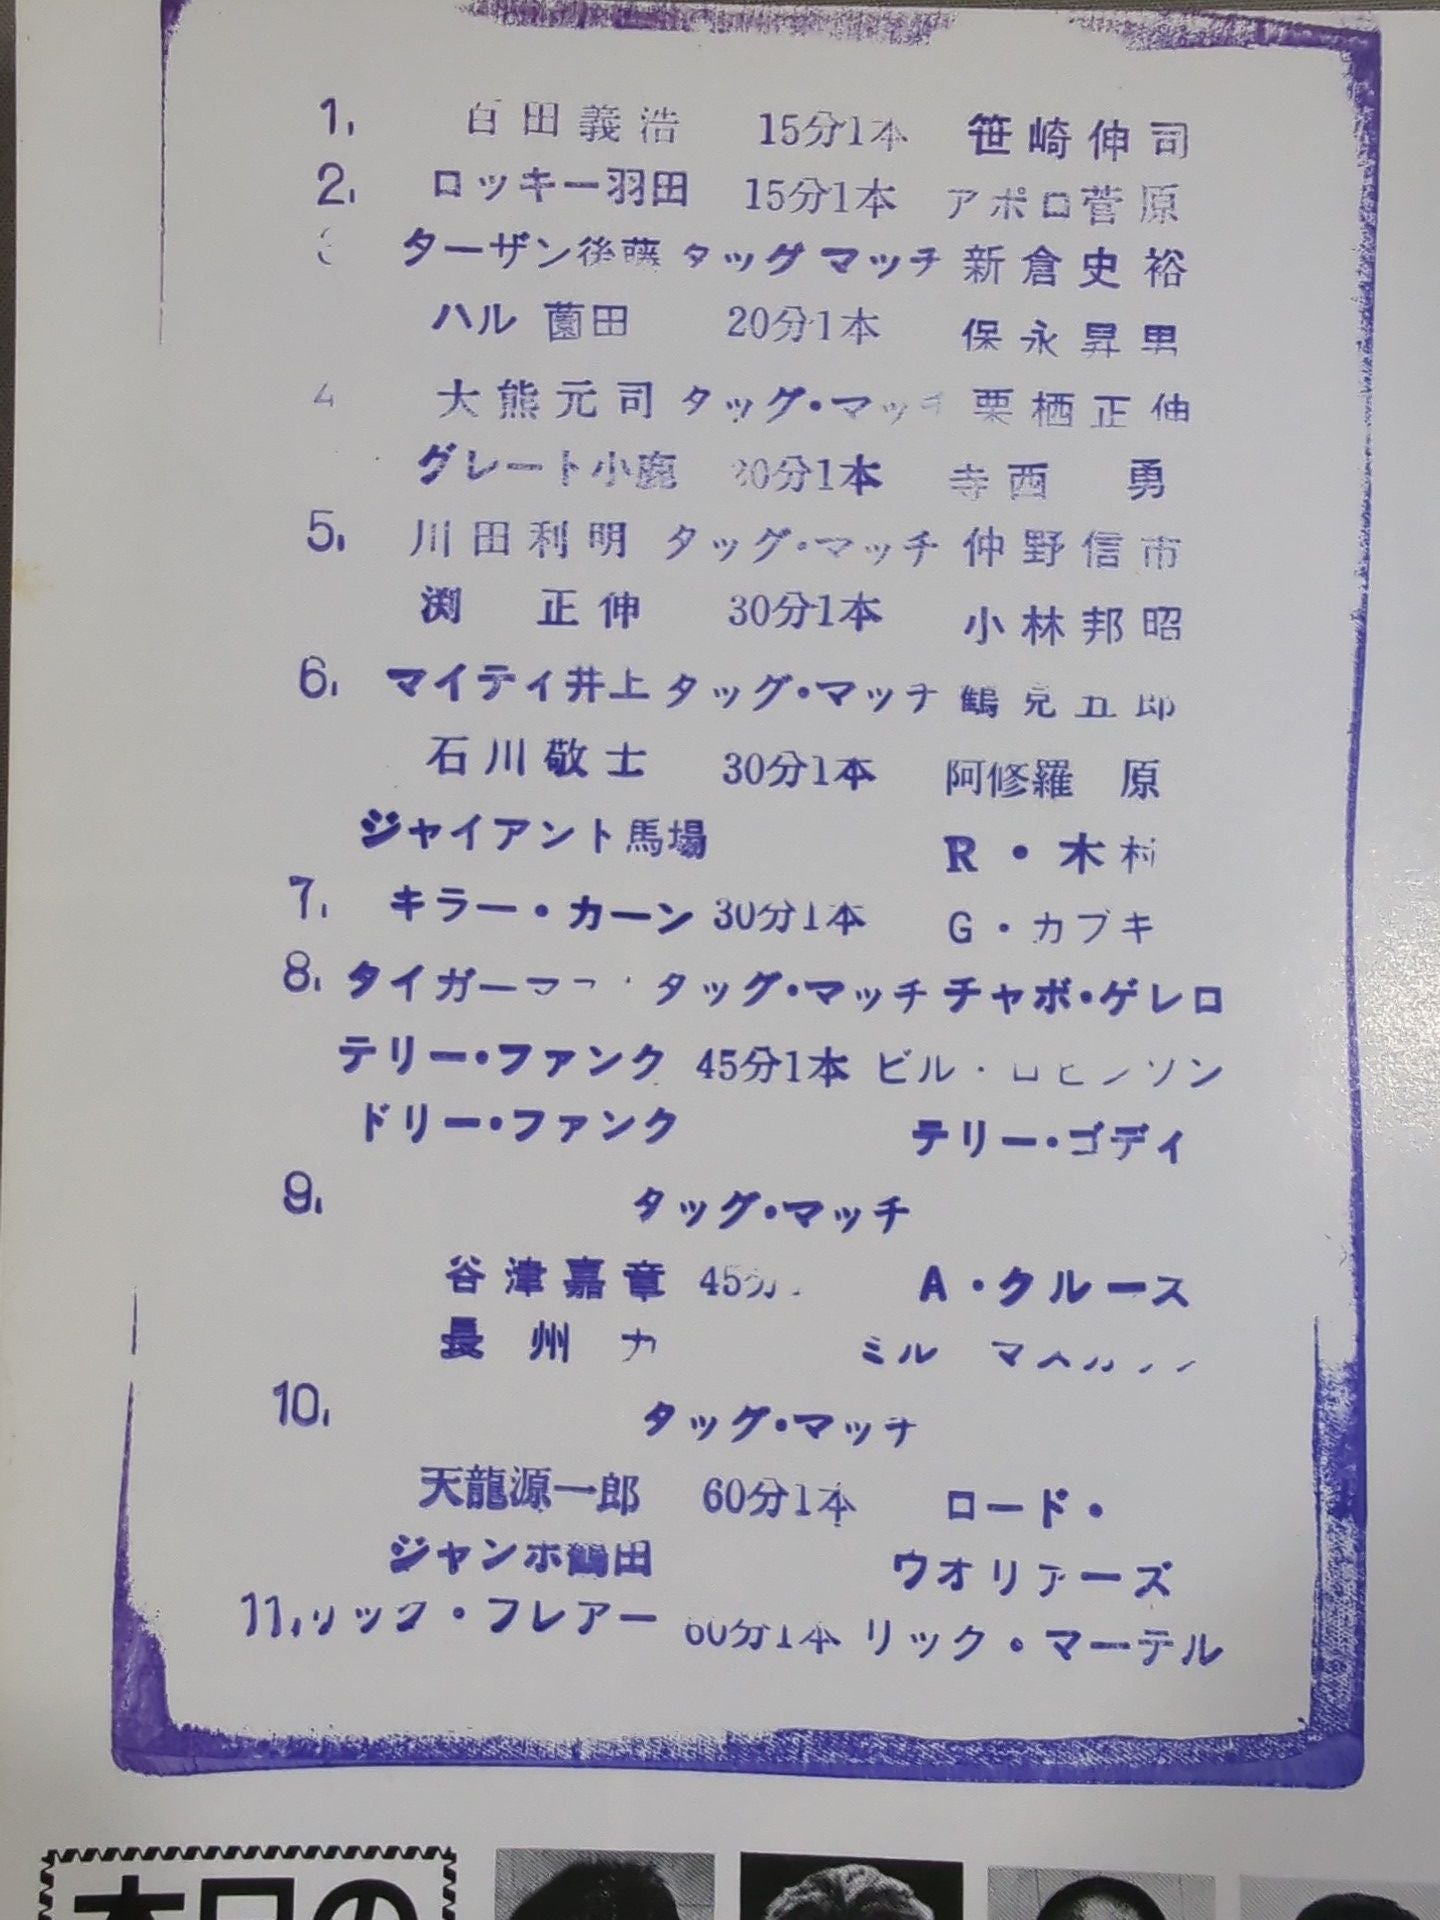 1. 百田義浩 15分1本 笹崎伸司
2. ロッキー羽田 15分1本 アポロ菅原
3 ターザン後藤 タッグマッチ 新倉史裕
ハル薗田 20分1本 保永昇男
4 大熊元司 タッグ・マッチ 栗栖正伸
グレート小鹿 20分1本 寺西 勇
5. 川田利明 タッグ・マッチ 仲野信市
渕 正伸 30分1本 小林邦昭
6. マイティ井上 タッグ・マッチ 鶴見五郎
石川敬士 30分1本 阿修羅 原
ジャイアント馬場 R・木村
7. キラー・カーン 30分1本 G・カブキ
8. タイガーマス タッグ・マッチ チャボ・ゲレロ
テリー・ファンク 45分1本 ビル・ロビンソン
ドリー・ファンク テリー・ゴディ
9. タッグ・マッチ
谷津嘉章 45分 A・クルース
長州力 ミル マスカラス
10. タッグ・マッチ
天龍源一郎 60分1本 ロード・
ジャンボ鶴田 ウオリアーズ
11. リック・フレアー 60分1本 リック・マーテル
本日の